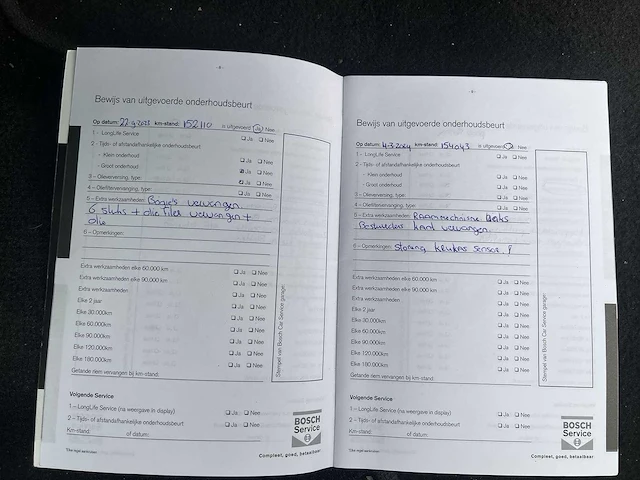 Bewijs van uitgevoerde onderhoudsbeurt
Op datum: 22-9-2023 km-stand: 152110 is uitgevoerd Ja Nee
1 – LongLife Service Ja Nee
2 – Tijds- of afstandafhankelijke onderhoudsbeurt
- Klein onderhoud Ja Nee
- Groot onderhoud Ja Nee
3 – Olieverversing, type: Ja Nee
4 – Oliefiltervervanging, type: Ja Nee
5 – Extra werkzaamheden: Bogie's vervangen.
6 stuks + olie filter vervangen +
olie
6 – Opmerkingen:
Extra werkzaamheden elke 60.000 km Ja Nee
Extra werkzaamheden elke 90.000 km Ja Nee
Extra werkzaamheden Ja Nee
Elke 2 jaar Ja Nee
Elke 30.000km Ja Nee
Elke 60.000km Ja Nee
Elke 90.000km Ja Nee
Elke 120.000km Ja Nee
Elke 180.000km Ja Nee
Getande riem vervangen bij km-stand:
Stempel van Bosch Car Service garage:
Volgende Service
1 – LongLife Service (na weergave in display) Ja Nee
2 – Tijds- of afstandafhankelijke onderhoudsbeurt Ja Nee
Km-stand: of datum:
BOSCH
Service
Compleet, goed, betaalbaar
Bewijs van uitgevoerde onderhoudsbeurt
Op datum: 4-3-2024 km-stand: 154043 is uitgevoerd Ja Nee
1 – LongLife Service Ja Nee
2 – Tijds- of afstandafhankelijke onderhoudsbeurt
- Klein onderhoud Ja Nee
- Groot onderhoud Ja Nee
3 – Olieverversing, type: Ja Nee
4 – Oliefiltervervanging, type: Ja Nee
5 – Extra werkzaamheden: Raammechanisme links
Bestuurders kant vervangen.
6 – Opmerkingen: Storing krukas sensor. !
Extra werkzaamheden elke 60.000 km Ja Nee
Extra werkzaamheden elke 90.000 km Ja Nee
Extra werkzaamheden Ja Nee
Elke 2 jaar Ja Nee
Elke 30.000km Ja Nee
Elke 60.000km Ja Nee
Elke 90.000km Ja Nee
Elke 120.000km Ja Nee
Elke 180.000km Ja Nee
Getande riem vervangen bij km-stand:
Stempel van Bosch Car Service garage:
Volgende Service
1 – LongLife Service (na weergave in display) Ja Nee
2 – Tijds- of afstandafhankelijke onderhoudsbeurt Ja Nee
Km-stand: of datum:
BOSCH
Service
Compleet, goed, betaalbaar